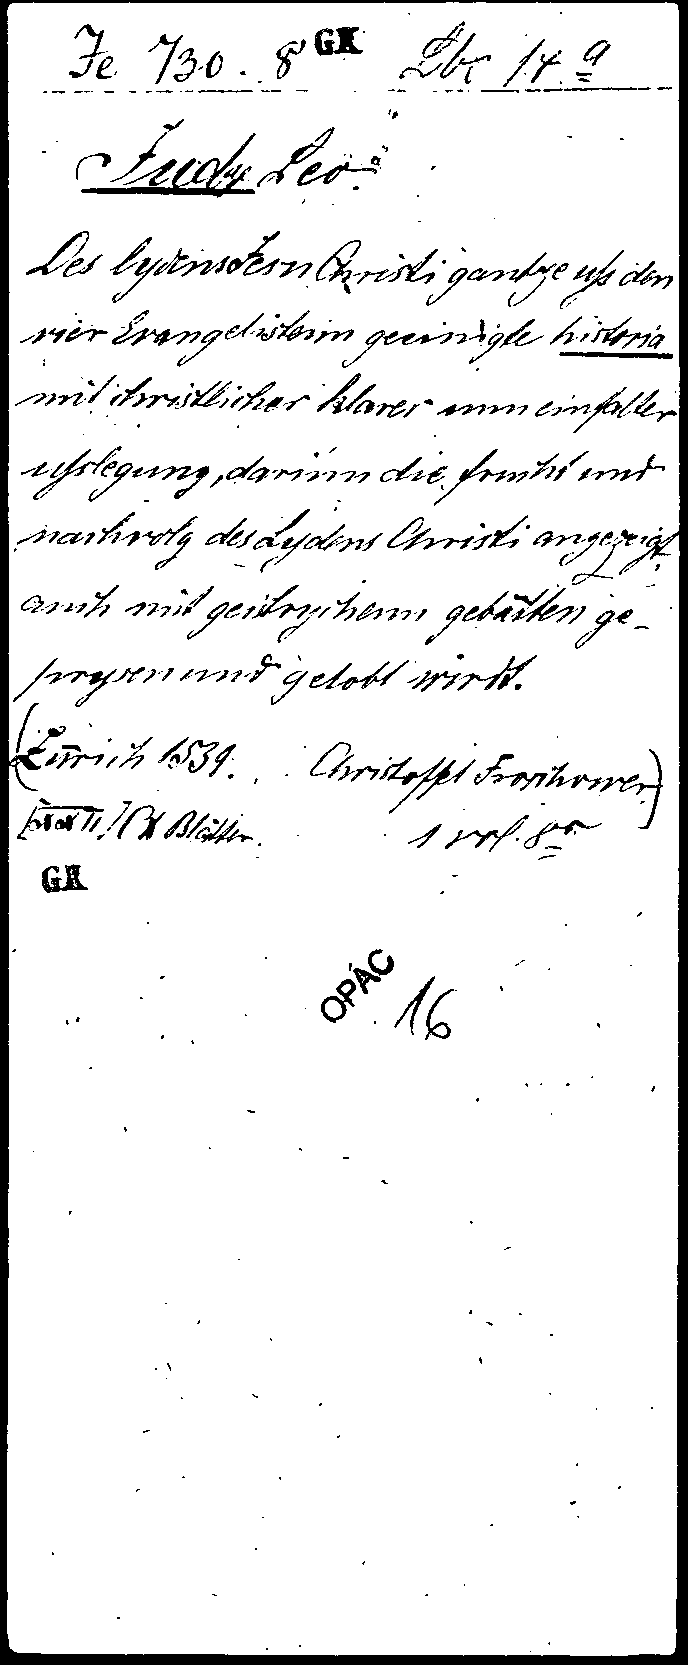 Fe 730. 8 GK Lbc 14 a
Judæ Leo.
Des lydens Jesu Christi gantze uss den
vier Evangelisten geeinigte historia
mit christlicher klarer unn einfalter
usslegung, darinn die frucht und
nachvolg des Lydens Christi angezeigt
auch mit geistrychenn gebätten ge-
prysen und gelobt wirdt.
(Zürich 1539. Christoffel Froschower.)
Blätter. 1 vol. 8o
GK
OPAC 16